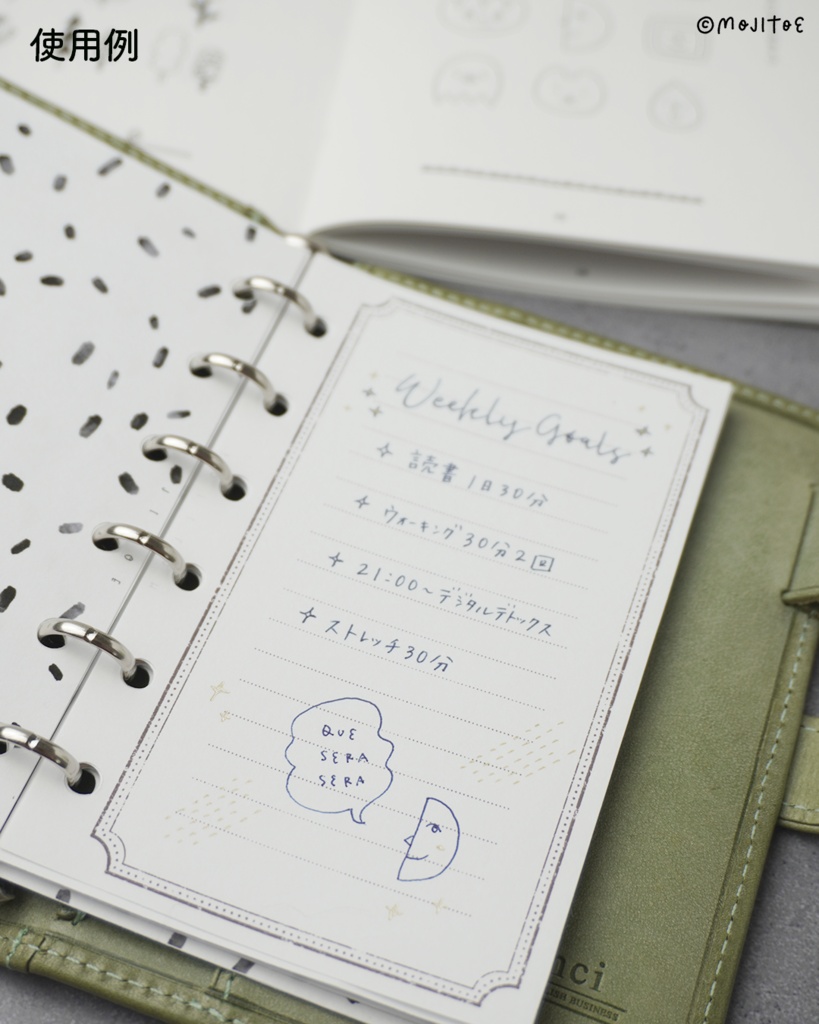 使用例
©MOJITOE
Weekly Goals
読書 1日30分
ウォーキング 30分 2回
21:00〜デジタルデトックス
ストレッチ 30分
QUE
SERA
SERA